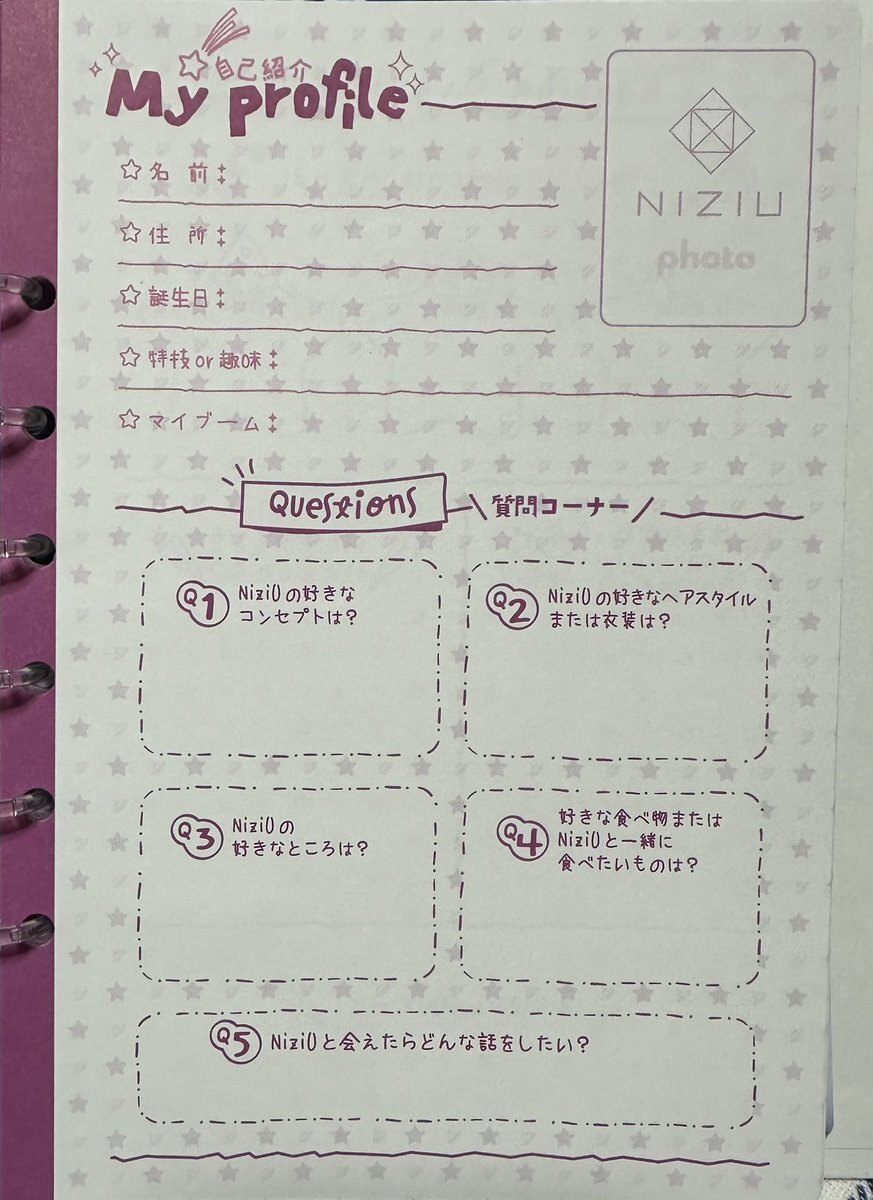 自己紹介
My profile
NIZIU
photo
名 前:
住 所:
誕生日:
特技or趣味:
マイブーム:
Questions
\質問コーナー/
Q1 NiziUの好きな
コンセプトは?
Q2 NiziUの好きなヘアスタイル
または衣装は?
Q3 NiziUの
好きなところは?
Q4 好きな食べ物または
NiziUと一緒に
食べたいものは?
Q5 NiziUと会えたらどんな話をしたい?